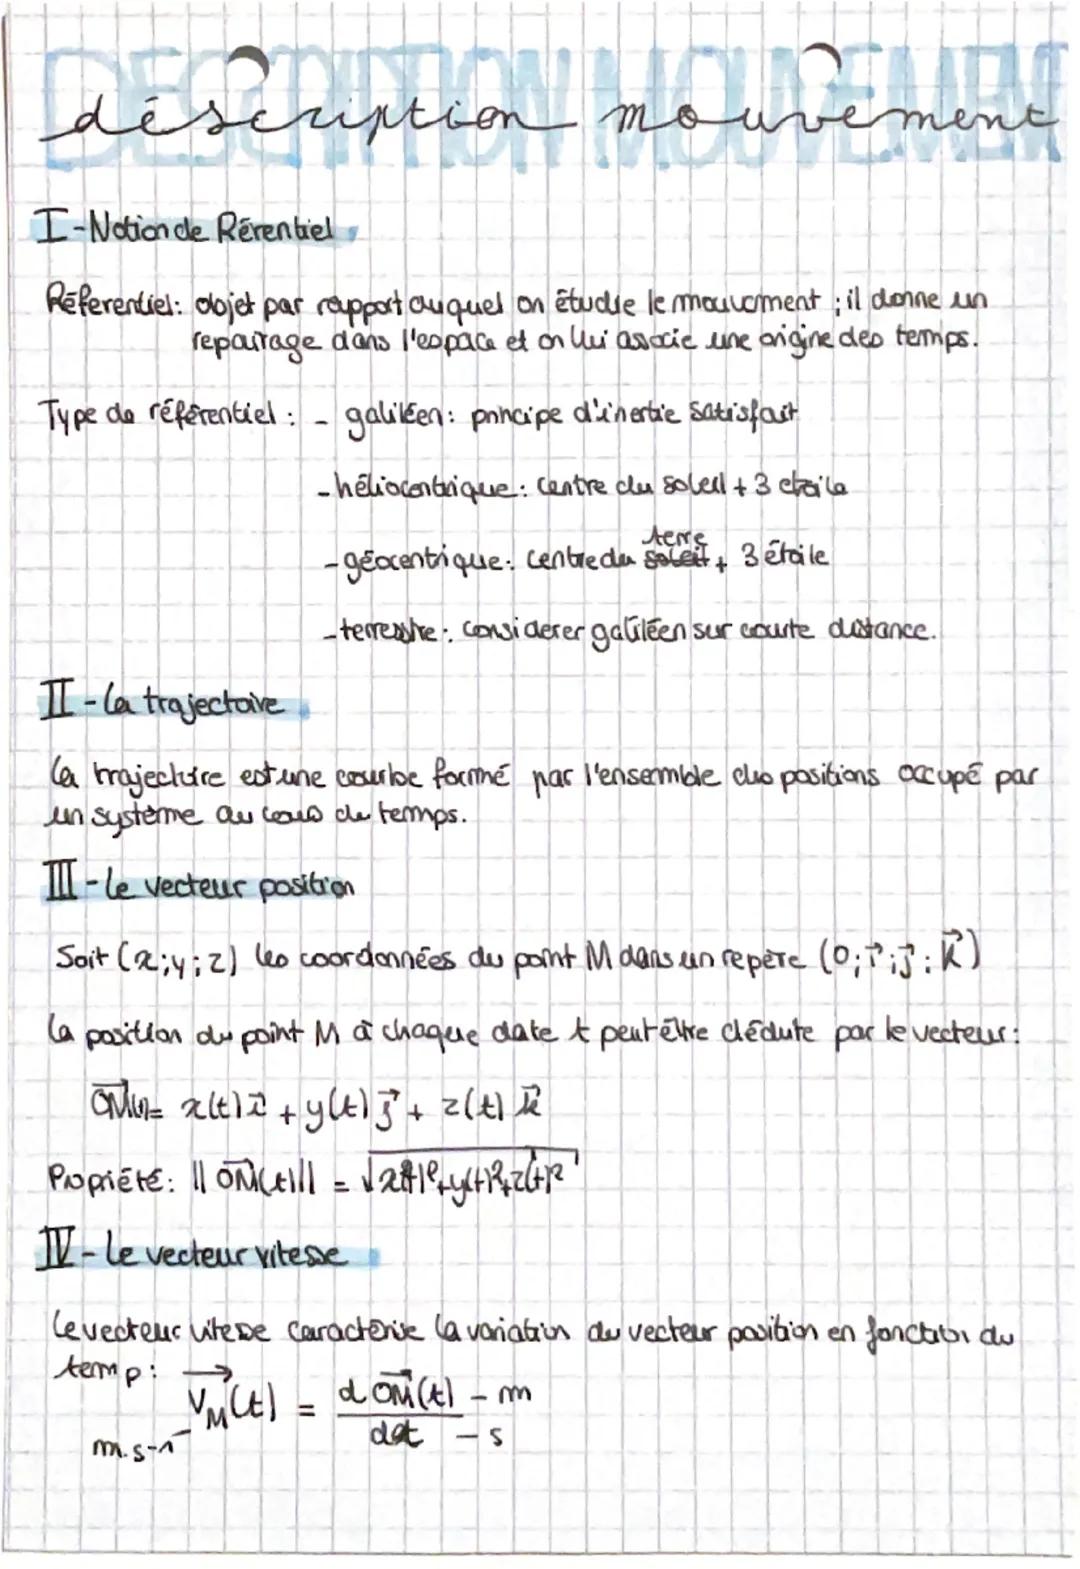 DESCRIPTION MOUVEMENT
déscription mouvement
I - Notion de Rérentiel
Réferentiel: objet par rapport auquel on étudie le mouvement ; il donne un
repairage dans l'espace et on lui associe une origine des temps.
Type de référentiel : - galiléen: principe d'inertie satisfait
- héliocentrique: centre du soleil + 3 etoile
terre
- géocentrique: centre du soleil + 3 étoile
- terrestre: considerer galiléen sur courte distance.
II - la trajectoire
la trajectoire est une courbe formé par l'ensemble des positions occupé par
un système au cours du temps.
III - le vecteur position
Soit (x;y;z) les coordonnées du point M dans un repère (O;i⃗;j⃗;k⃗)
la position du point M à chaque date t peut être dédute par le vecteur:
OM⃗(t)= x(t)i⃗ + y(t)j⃗ + z(t)k⃗
Propriété: ||OM⃗(t)|| = √x(t)²+y(t)²+z(t)²
IV - le vecteur vitesse
le vecteur vitesse caractérise la variation du vecteur position en fonction du
temp:
V⃗M(t) = dOM⃗(t) - m
dt - s
m.s-1